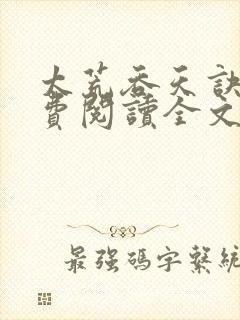 大荒吞天訣
費閱讀全文
最強碼字繫統